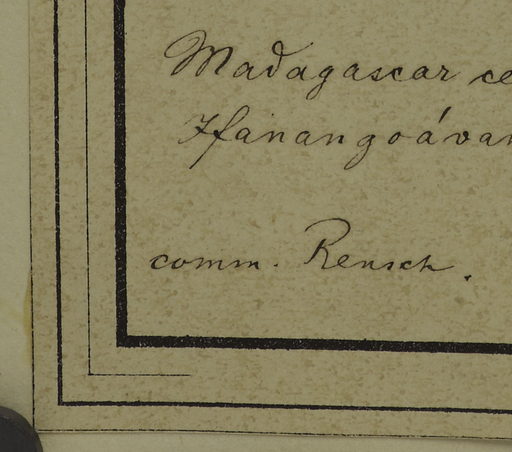 Madagascar ce
Ifanangoávan
comm. Rensch.